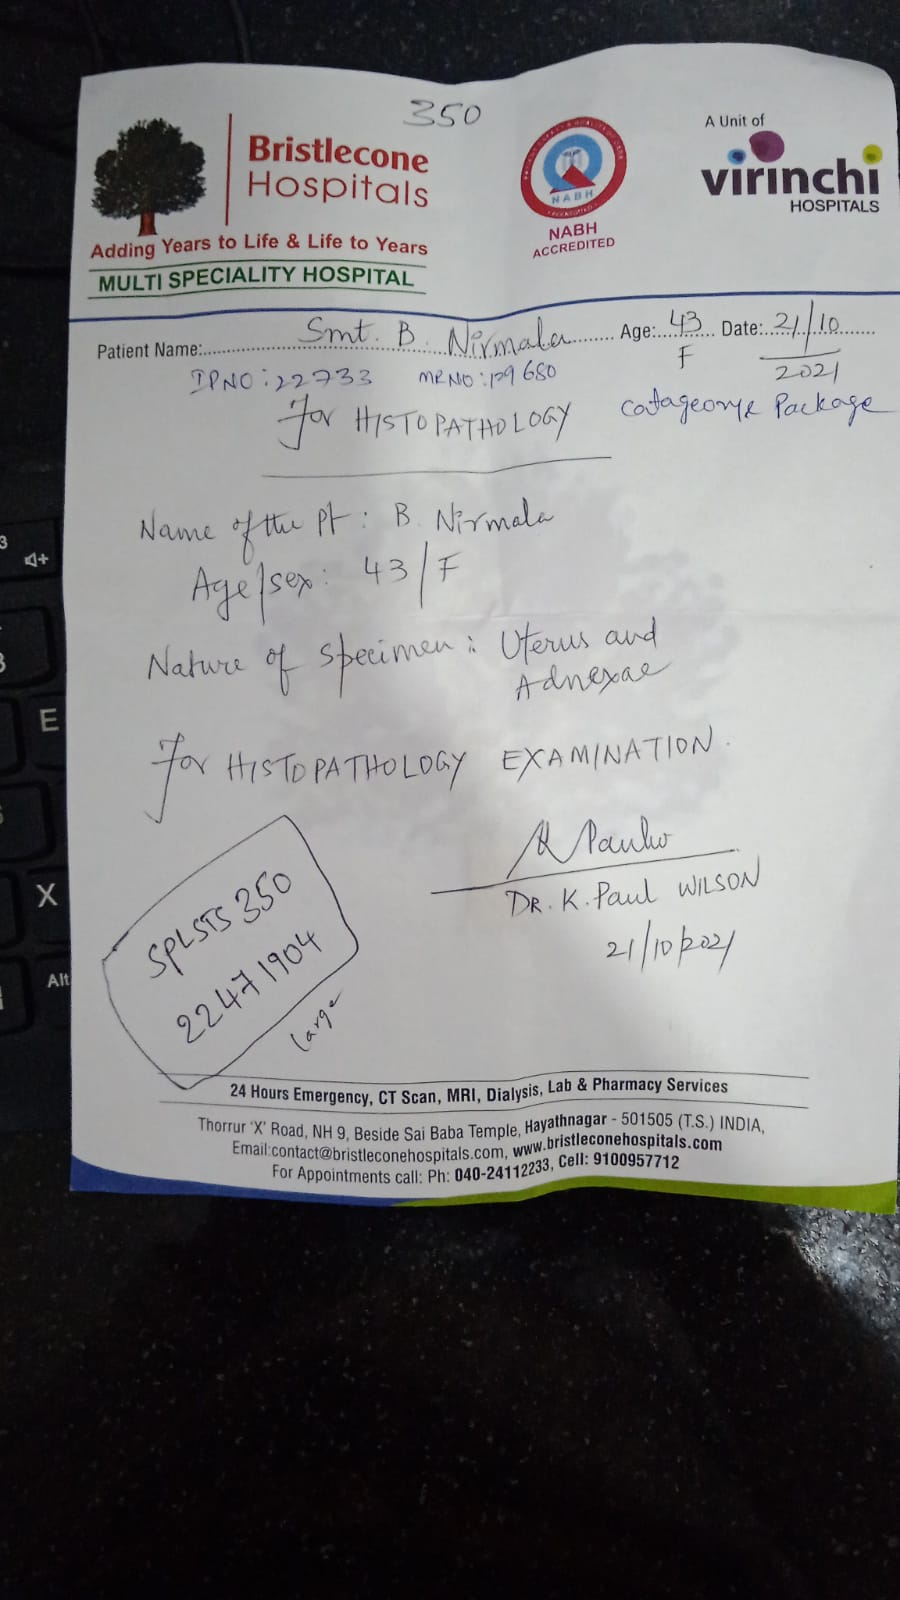 350
Bristlecone
Hospitals
Adding Years to Life & Life to Years
MULTI SPECIALITY HOSPITAL
NABH
NABH
ACCREDITED
A Unit of
virinchi
HOSPITALS
Patient Name: Smt. B. Nirmala Age: 43 Date: 21/10
F 2021
IPNO: 22733 MRNO: 129680
For HISTOPATHOLOGY Package
Name of the Pt: B. Nirmala
Age/sex: 43/F
Nature of specimen: Uterus and
Adnexae
For HISTOPATHOLOGY EXAMINATION.
DR. K. Paul WILSON
21/10/2021
SPLSTS 350
22471904
Large
24 Hours Emergency, CT Scan, MRI, Dialysis, Lab & Pharmacy Services
Thorrur 'X' Road, NH 9, Beside Sai Baba Temple, Hayathnagar - 501505 (T.S.) INDIA,
Email:contact@bristleconehospitals.com, www.bristleconehospitals.com
For Appointments call: Ph: 040-24112233, Cell: 9100957712
3
E
X
Alt